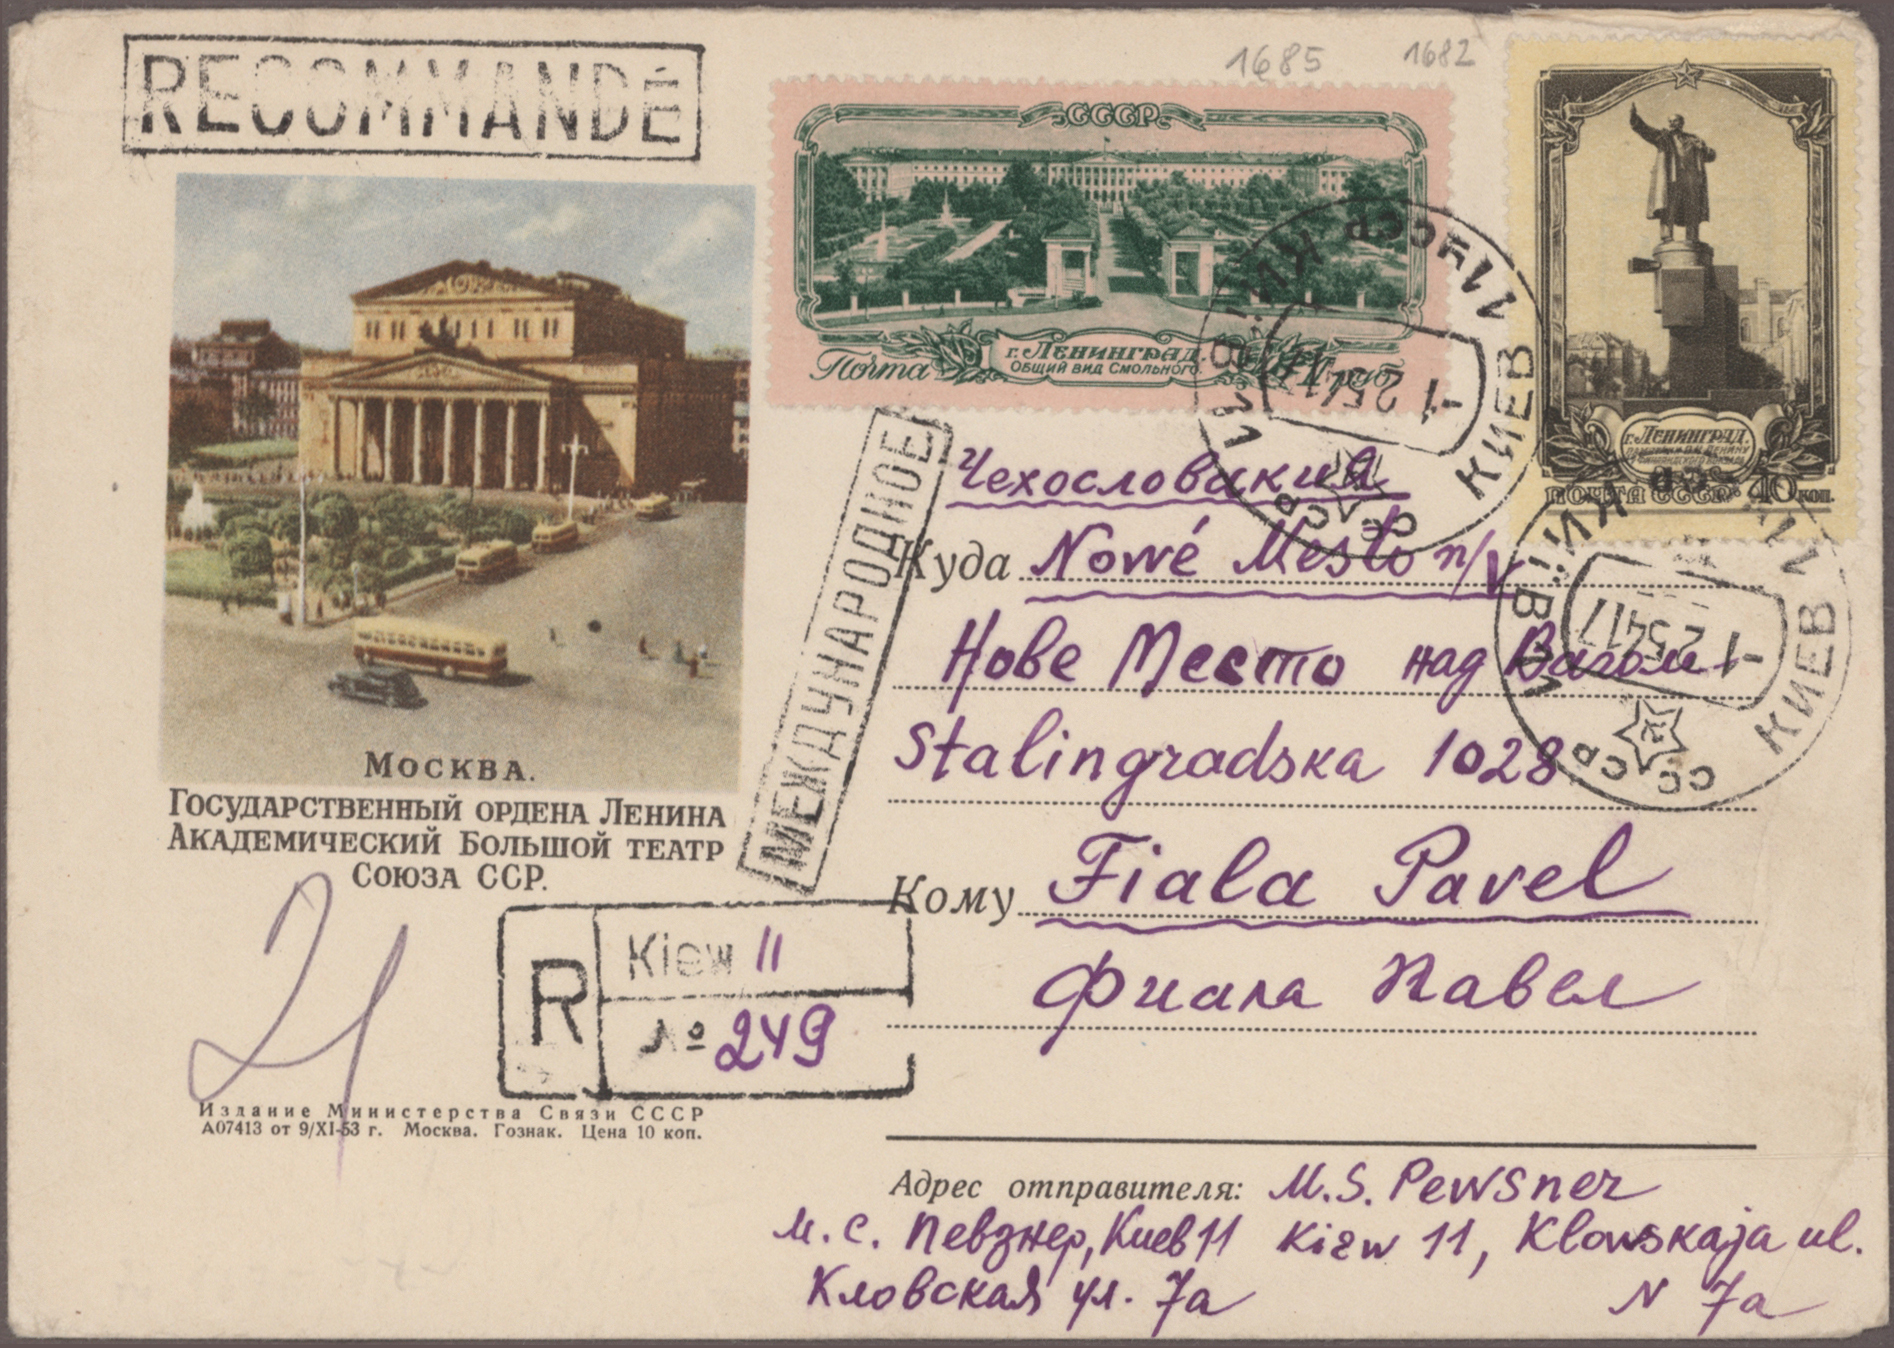 RECOMMANDÉ
1685
1682
СССР
Почта
г. Ленинград.
Общий вид Смольного.
1 руб
г. Ленинград.
ПОЧТА СССР 40 коп.
КИЇВ 11 УССР
КИЕВ 11
СССР
-1 2 54 17
КИЇВ 11
КИЕВ 11
СССР
-1 2 54 17
МЕЖДУНАРОДНОЕ
Москва.
Государственный ордена Ленина
Академический Большой театр
Союза ССР.
Чехословакия
Куда Nowé Mesto n/V
Нове Место над Вагом
Stalingradska 1028
Кому Fiala Pavel
Фиала Павел
R
Kiew 11
№ 249
21
Издание Министерства Связи СССР
А07413 от 9/XI-53 г. Москва. Гознак. Цена 10 коп.
Адрес отправителя: M.S. Pewsner
М. С. Певзнер, Киев 11 Kiew 11, Klowskaja ul.
Кловская ул. 7а N 7a